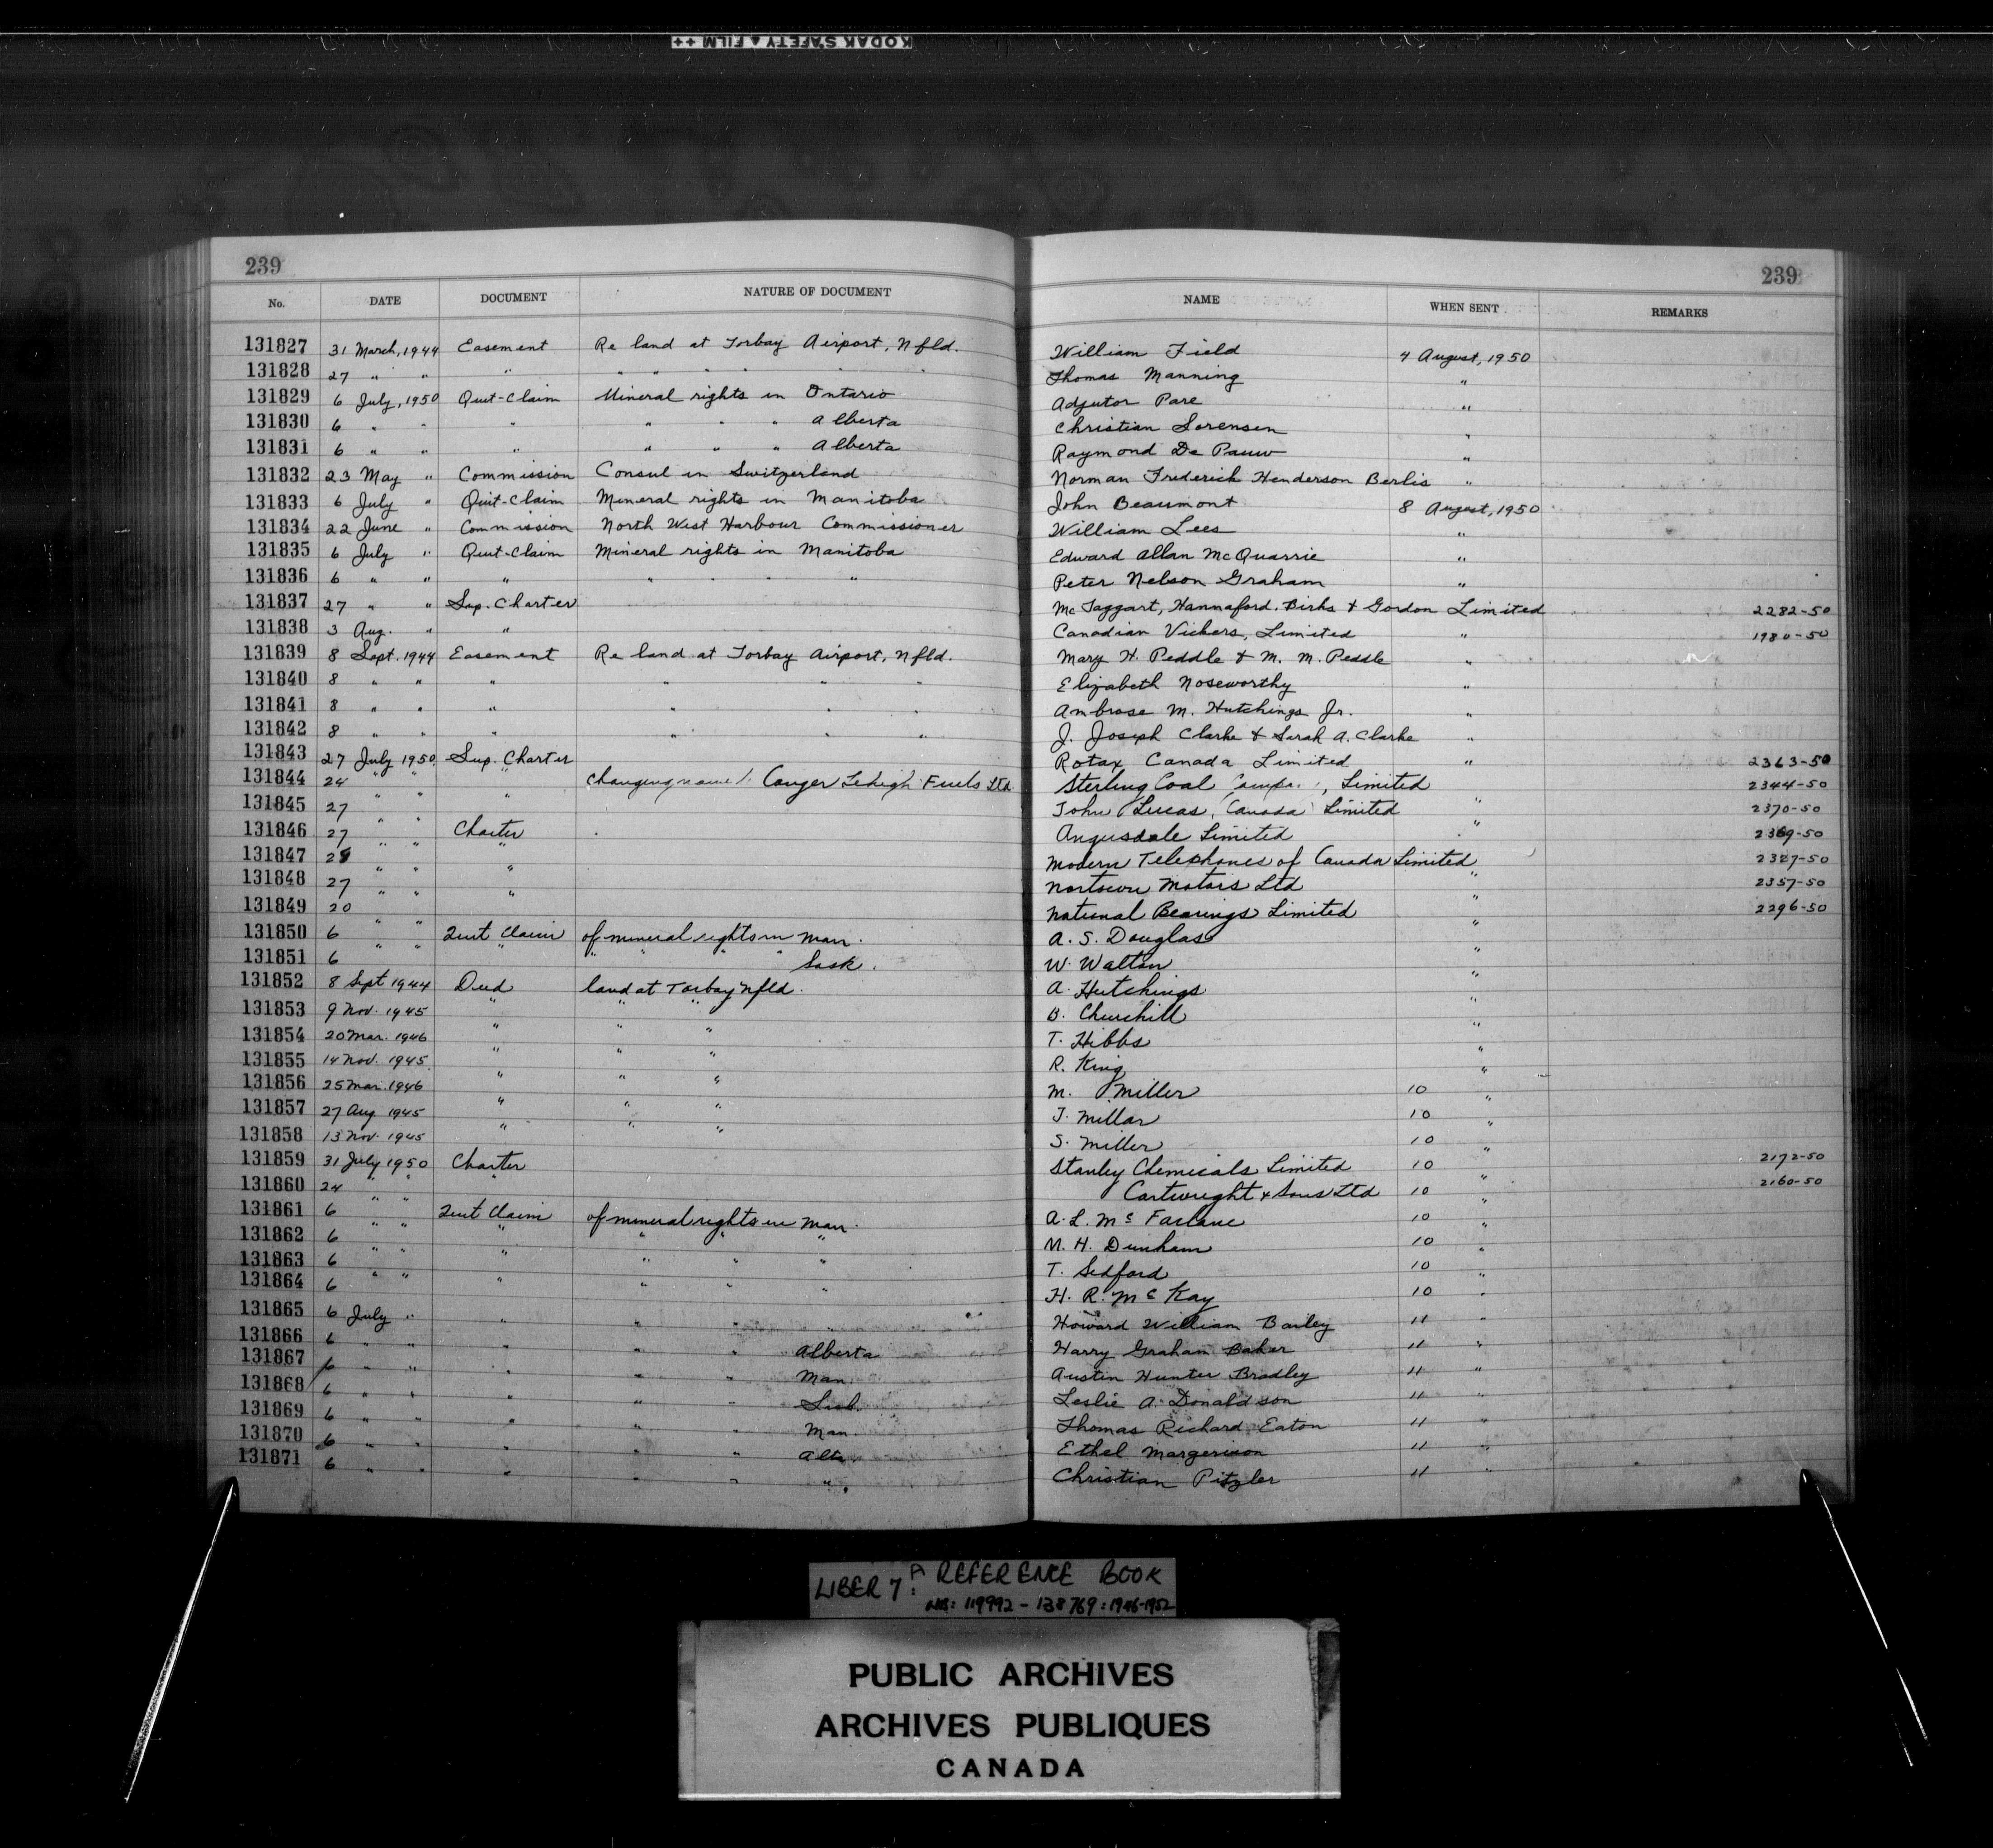 KODAK SAFETY FILM ++
239 239
No. DATE DOCUMENT NATURE OF DOCUMENT NAME WHEN SENT REMARKS
131827 31 March, 1944 Easement Re land at Torbay Airport, Nfld. William Field 4 August, 1950
131828 27 " " " " " " " " " Thomas Manning "
131829 6 July, 1950 Quit-Claim Mineral rights in Ontario Adjutor Pare "
131830 6 " " " " " " Alberta Christian Sorensen "
131831 6 " " " " " " Alberta Raymond De Pauw "
131832 23 May " Commission Consul in Switzerland Norman Frederick Henderson Berlis "
131833 6 July " Quit-Claim Mineral rights in Manitoba John Beaumont 8 August, 1950
131834 22 June " Commission North West Harbour Commissioner William Lees "
131835 6 July " Quit-Claim Mineral rights in Manitoba Edward Allan McQuarrie "
131836 6 " " " " " " " Peter Nelson Graham "
131837 27 " " Sup. Charter McTaggart, Hannaford, Birks & Gordon Limited 2282-50
131838 3 Aug. " " Canadian Vickers, Limited " 1980-50
131839 8 Sept. 1944 Easement Re land at Torbay Airport, Nfld. Mary H. Peddle & M. M. Peddle "
131840 8 " " " " " " Elizabeth Noseworthy "
131841 8 " " " " " " Ambrose M. Hutchings Jr. "
131842 8 " " " " " " J. Joseph Clarke & Sarah A. Clarke "
131843 27 July 1950 Sup. Charter Rotax Canada Limited " 2363-50
131844 24 " " " Changing name to Conger Lehigh Fuels Ltd. Sterling Coal Company, Limited 2344-50
131845 27 " " " John Lucas (Canada) Limited " 2370-50
131846 27 " " Charter Angusdale Limited " 2369-50
131847 28 " " " Modern Telephones of Canada Limited 2327-50
131848 27 " " " Nortown Motors Ltd " 2357-50
131849 20 " " " National Bearings Limited " 2296-50
131850 6 " " Quit Claim of mineral rights in Man. A. S. Douglas "
131851 6 " " " " " " " Sask. W. Walton "
131852 8 Sept 1944 Deed land at Torbay Nfld. A. Hutchings "
131853 9 Nov. 1945 " " " B. Churchill "
131854 20 Mar. 1946 " " " T. Hibbs "
131855 14 Nov. 1945 " " " R. King "
131856 25 Mar. 1946 " " " M. Miller 10 "
131857 27 Aug 1945 " " " J. Millar 10 "
131858 13 Nov. 1945 " " " S. Miller 10 "
131859 31 July 1950 Charter Stanley Chemicals Limited 10 " 2172-50
131860 24 " " " Cartwright & Sons Ltd 10 " 2160-50
131861 6 " " Quit Claim of mineral rights in Man. A. L. McFarlane 10 "
131862 6 " " " " " " M. H. Dunham 10 "
131863 6 " " " " " " T. Sedford 10 "
131864 6 " " " " " " H. R. McKay 10 "
131865 6 July " " " " " Howard William Bailey 11 "
131866 6 " " " " " Alberta Harry Graham Baker 11 "
131867 6 " " " " " Man. Austin Hunter Bradley 11 "
131868 6 " " " " " Sask. Leslie A. Donaldson 11 "
131869 6 " " " " " Man. Thomas Richard Eaton 11 "
131870 6 " " " " " Alta. Ethel Margerison 11 "
131871 6 " " " " " " Christian Pitzler 11 "
LIBER 7A: REFERENCE BOOK
NOS: 119992 - 138769: 1946-1952
PUBLIC ARCHIVES
ARCHIVES PUBLIQUES
CANADA